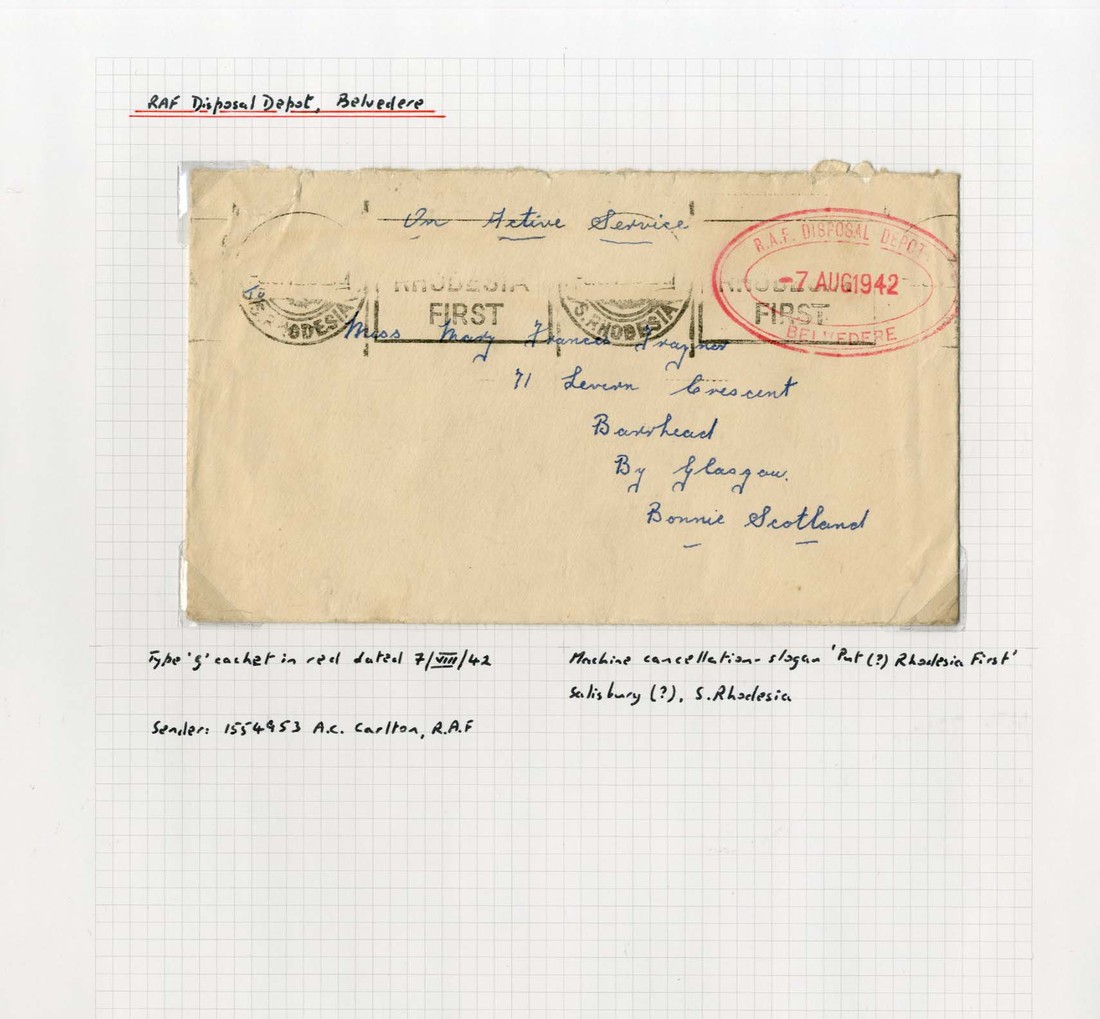 RAF Disposal Depot, Belvedere
On Active Service
R.A.F. DISPOSAL DEPOT
-7 AUG 1942
BELVEDERE
RHODESIA
FIRST
S. RHODESIA
RHODESIA
FIRST
S. RHODESIA
Miss Mary Frances Traynor
71 Levern Crescent
Barrhead
By Glasgow.
Bonnie Scotland
Type 'g' cachet in red dated 7/VIII/42
Machine cancellation - slogan 'Put (?) Rhodesia First'
Salisbury (?), S. Rhodesia
Sender: 1554953 A.C. Carlton, R.A.F